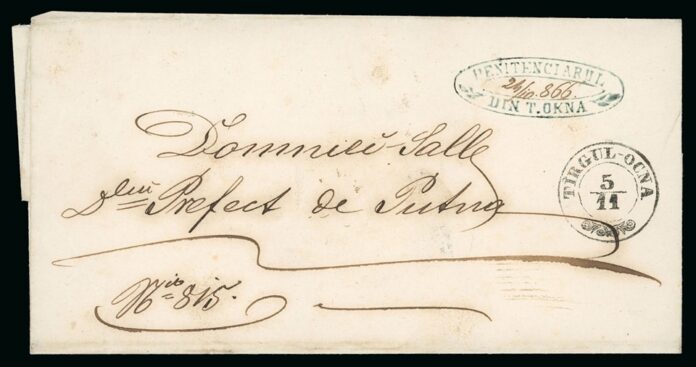 PENITENCIARUL
24/10 866.
DIN T. OKNA
Domniei-Salle
Dlui Prefect de Putna
TÎRGUL-OCNA
5/11
No 815.